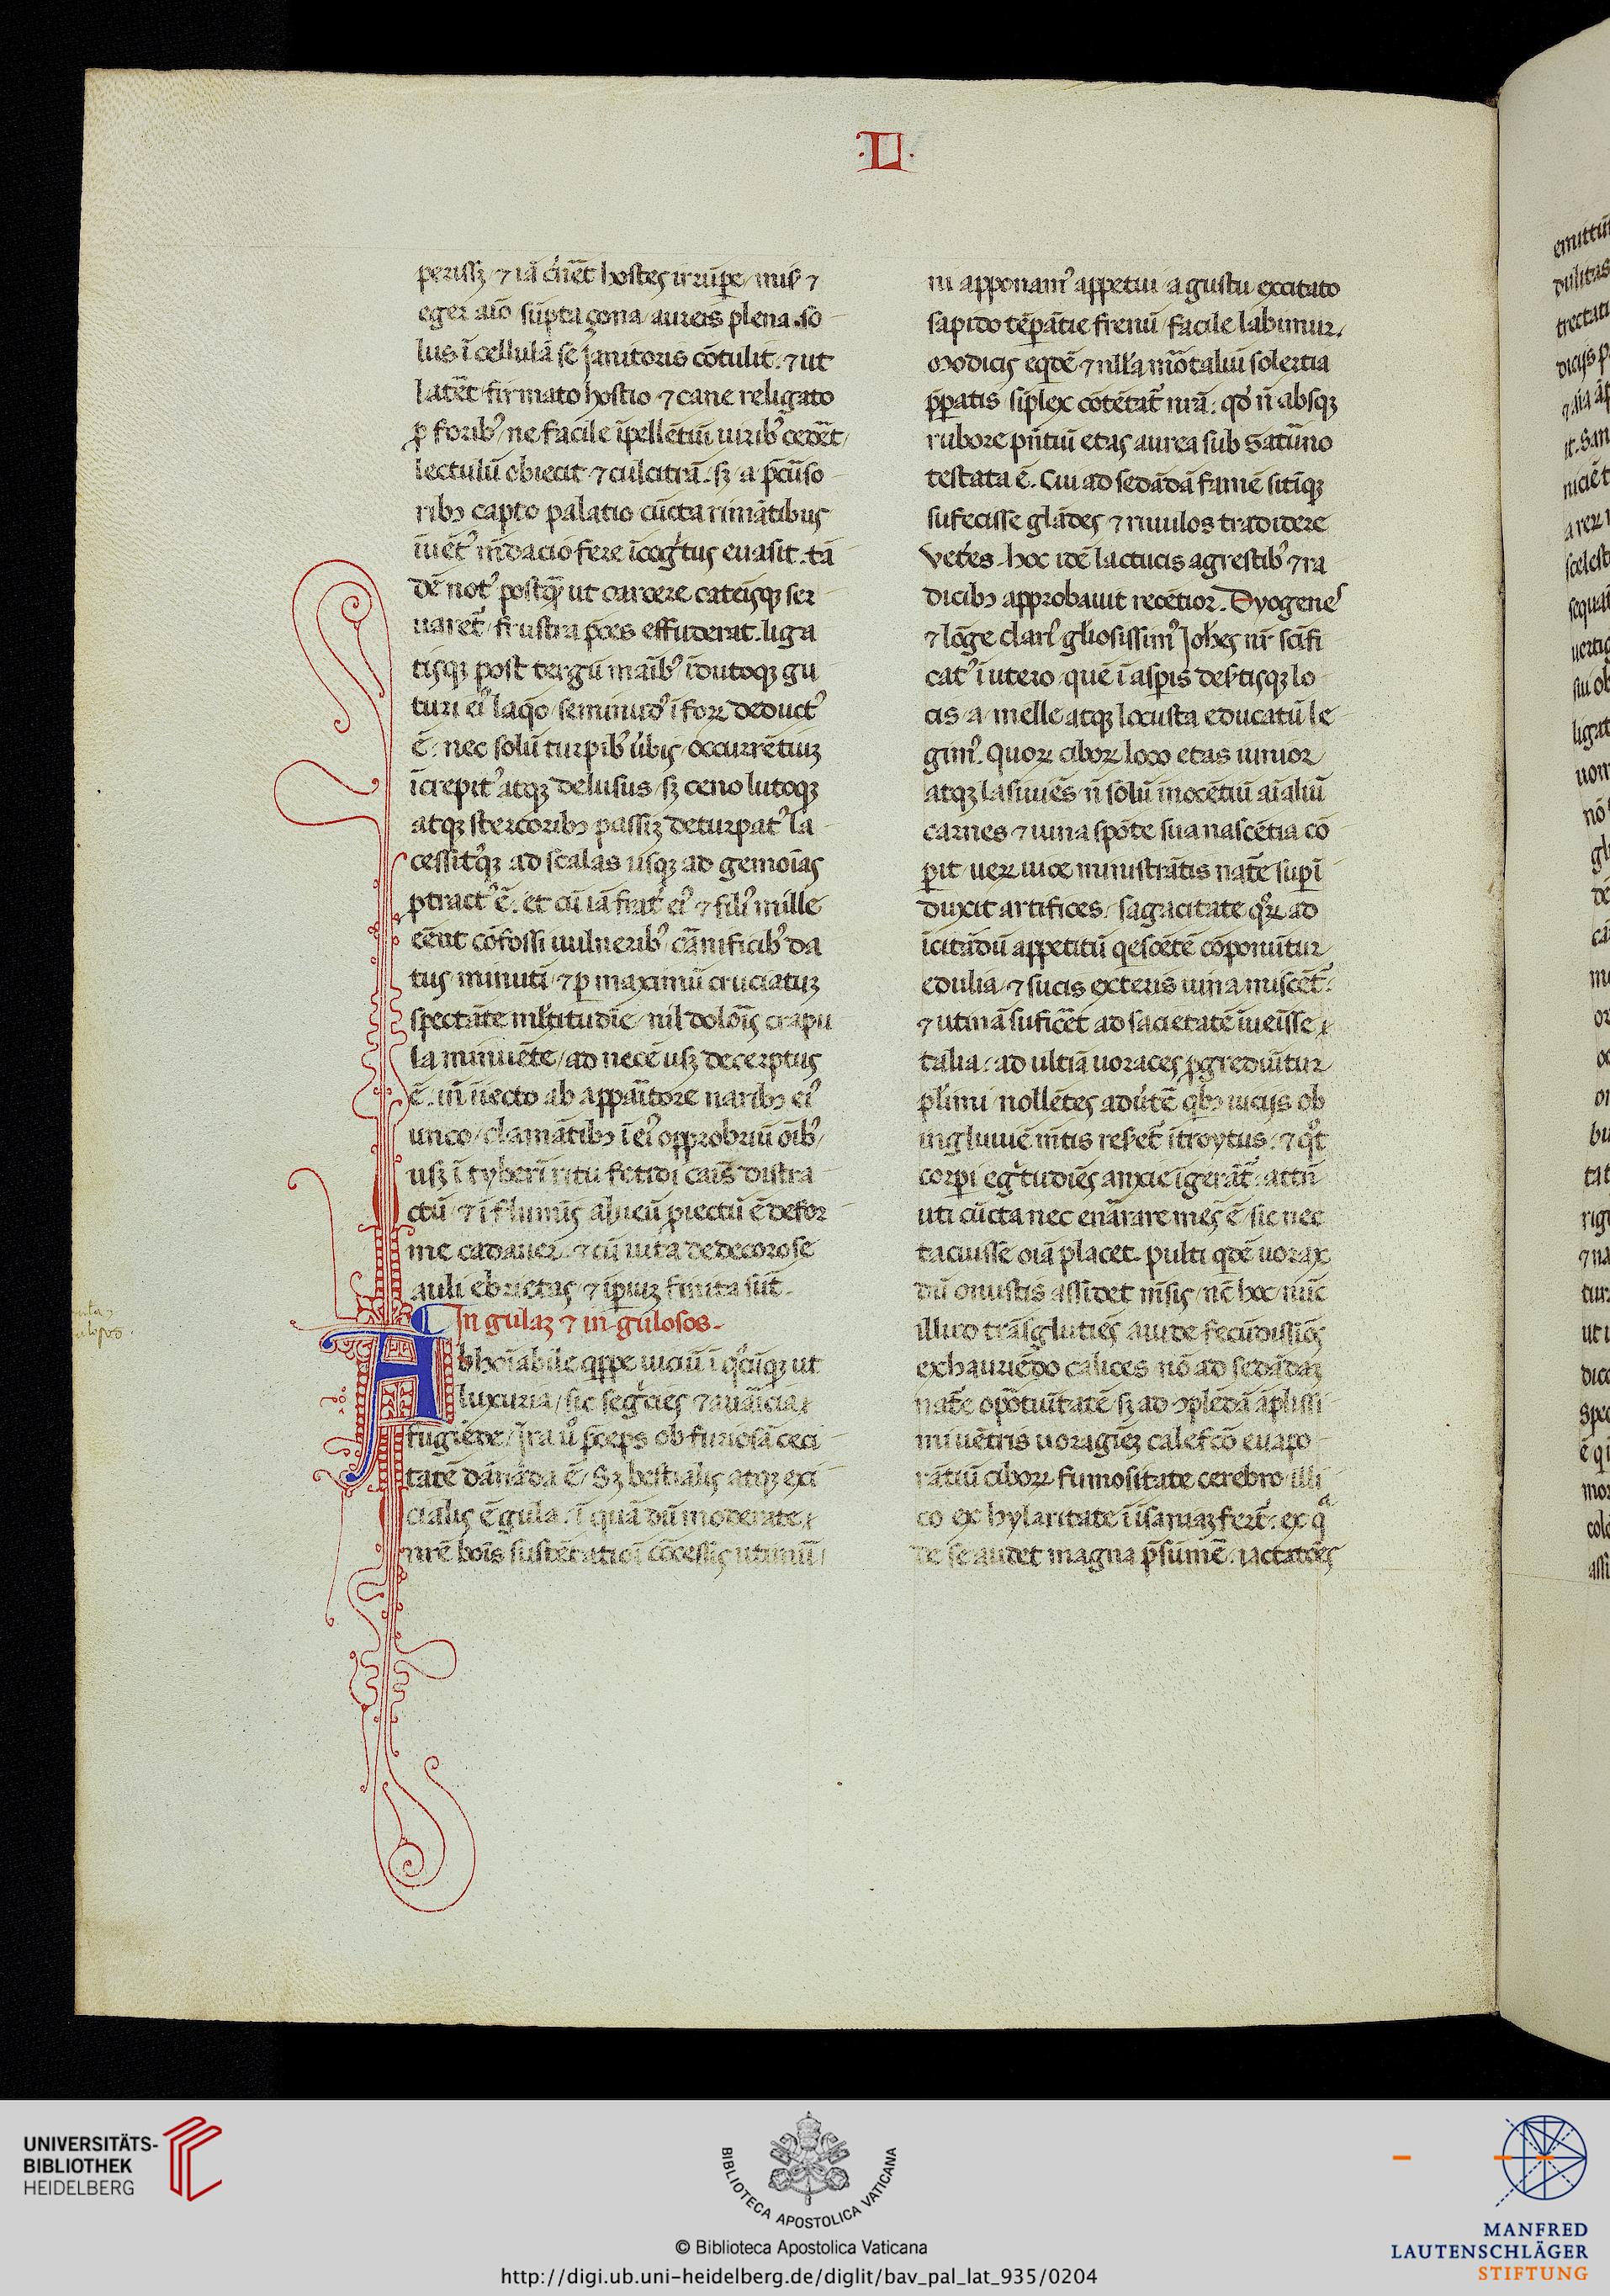 ·LI·
perissz ⁊ iā cr̄nēt hostes irrūpe mis̄ ⁊
eger aīo sūpta çona aureis plena so
lus ī cellulā se janitoris cōtulit. ⁊ ut
latēt firmato hostio ⁊ cane religato
p foribꝰ ne facile īpellētiū uiribꝰ cedēt
lectulū obiecit ⁊ culcitrā. sz a p̄cūso
ribꝫ capto palatio cūcta rimātibus
īuētꝰ m̄dacio fere īcogͥtus euasit. tā
dē notꝰ postqꝫ ut carcere cateisqꝫ ser
uaret᷑ frustra p̄ces effuderat. liga
tisqꝫ post tergū maībꝰ īdutoqꝫ gu
turi eiꝰ laq̄o seminudꝰ ī foꝝ deductꝰ
ē. nec solū turpibꝰ ūbis occurrētiuꝫ
īcrepitꝰ atqꝫ delusus sꝫ ceno lutoqꝫ
atqꝫ stercoribꝫ passiꝫ deturpatꝰ la
cessitꝰqꝫ ad scalas usqꝫ ad gemoīas
ptractꝰ ē. et cū iā frat̄ eiꝰ ⁊ filiꝰ mille
eēnt cōfossi uulneribꝰ cārnificibꝰ da
tus minutī ⁊ p maximū cruciatuꝫ
spectāte ml̄titudīe nil dolōis crapu
la minuēte ad necē usꝫ decerptus
ē. īn īiecto ab apparitore naribꝫ eiꝰ
unco clamātibꝫ ī eiꝰ opprobriū oībꝰ
usꝫ ī tyberī ritu fetidi caīs distra
ctū ⁊ ī flumīs alueū piectū ē defor
me cadauer. ⁊ cū uita dedecorose
auli ebrietas ⁊ īpiuꝫ finita sūt.
In gulaꝫ ⁊ in gulosos.
Abhoīabile qͥppe uiciū ī qͦcūqꝫ ut
luxuria sic segͥcies ⁊ auāicia
fugiēde. Ira uͦ p̄ceps ob furiosā ceci
tatē dānāda ē. Sꝫ bestialis atqꝫ exi
cialis ē gula. ī quā dū moderate
nrē bois sustētatiōi cōcessis utimur
ni apponamꝰ appetiui a gustu excitato
sapido tēpātie frenū facile labimur.
Modicis eqͥdē ⁊ nll̄a mōtaliū solertia
p̄patis sīplex cōtētat᷑ nr̄a. qd̄ n̄ absqꝫ
rubore pn̄tiū etas aurea sub Satūno
testata ē. Cui ad sedādā famē sitīqꝫ
sufecisse glādes ⁊ riuulos tradidere
Vet̄es. hoc idē lactucis agrestibꝰ ⁊ ra
dicibꝫ approbauit recētior. Dyogenes
⁊ lōge clarꝰ gl̄iosissimꝰ Joh̄es nr̄ sc̄ifi
catꝰ ī utero quē ī aspis des̄tisqꝫ lo
cis a melle atqꝫ locusta educatū le
gimꝰ. Quoꝝ ciboꝝ loco etas iunior
atqꝫ lasiuiēs n̄ solū īnocētiū aīaliū
carnes ⁊ uina spōte sua nascētia cō
pit ueꝝ uice ministrātis nat̄e supī
duxit artifices. sagacitate qͦꝝ ad
īcitādū appetitū qͥescētē cōponūtur
edulia ⁊ sucis exteris uina miscēt᷑.
⁊ utinā suficēt ad sacietatē īueīsse
talia. ad ultiā uoraces pgrediūtur
pl̄imi nollētes adūtē qͥbꝫ uiciis ob
ingluuiē m̄tis reset᷑ ītroytus. ⁊ qͦt
corpi egͥtudīes anxie īgerāt᷑. attn̄
uti cūcta nec enārare mēs ē sic nec
tacuisse oīa placet. pulti qͥdē uorax
dū onustis assidet m̄sis nē hoc nūc
illud trāsglutiēs auide fecūdissiōs
exhauriēdo calices nō ad sedādaꝫ
nat̄e opōtūitatē sꝫ ad ꝯplēdā āplissi
mi uētris uoragīeꝫ calefcō euapo
rātiū ciboꝝ fumositate cerebro illi
co ex hylaritate ī īsaniaꝫ fert᷑. ex qͣ
de se audet magna p̄sumē. iactatōes
UNIVERSITÄTS-
BIBLIOTHEK
HEIDELBERG
BIBLIOTECA APOSTOLICA VATICANA
© Biblioteca Apostolica Vaticana
http://digi.ub.uni-heidelberg.de/diglit/bav_pal_lat_935/0204
MANFRED
LAUTENSCHLÄGER
STIFTUNG